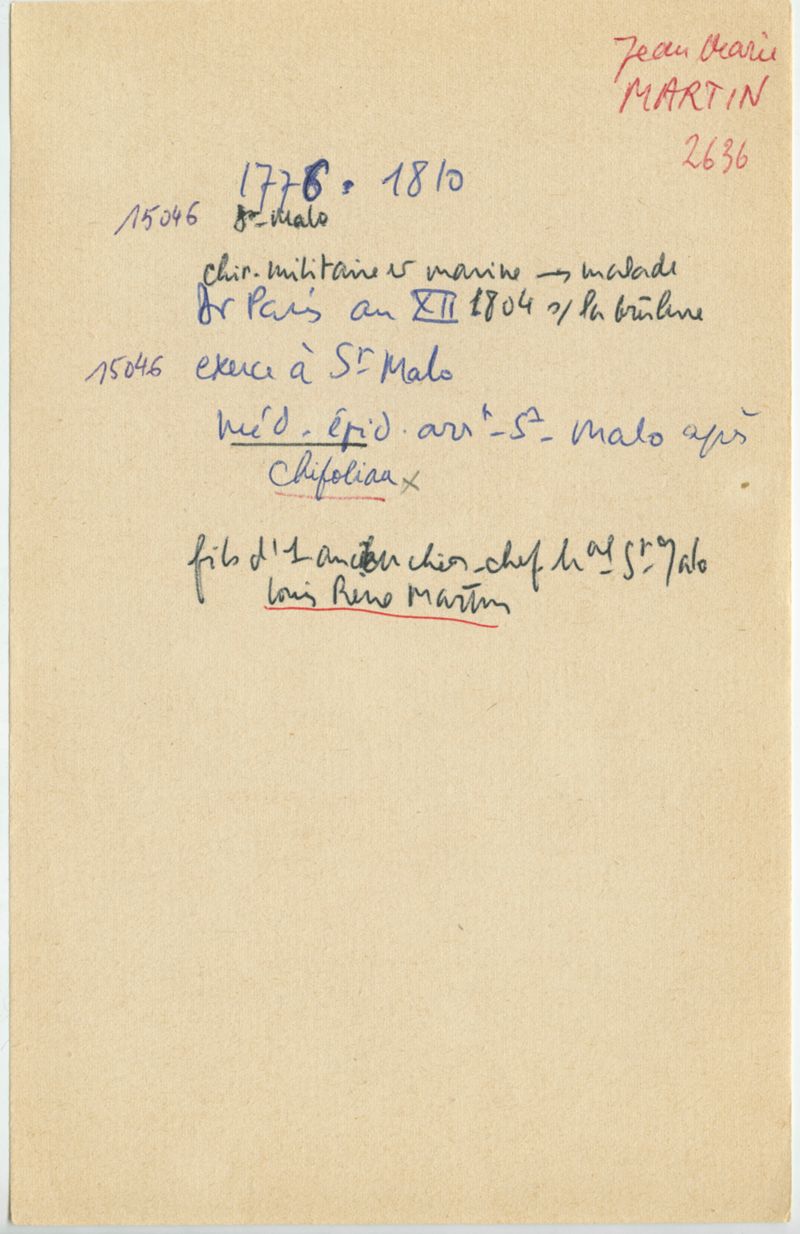 Jean Marie
MARTIN
2636
1776 . 1810
15046 St-Malo
chir. militaire et marine → malade
Dr Paris an XII 1804 s/ la brûlure
15046 exerce à St Malo
méd. épid. arrt - St - Malo après
Chifoliau x
fils d'1 ancien chir-chef hal St Malo
Louis René Martin